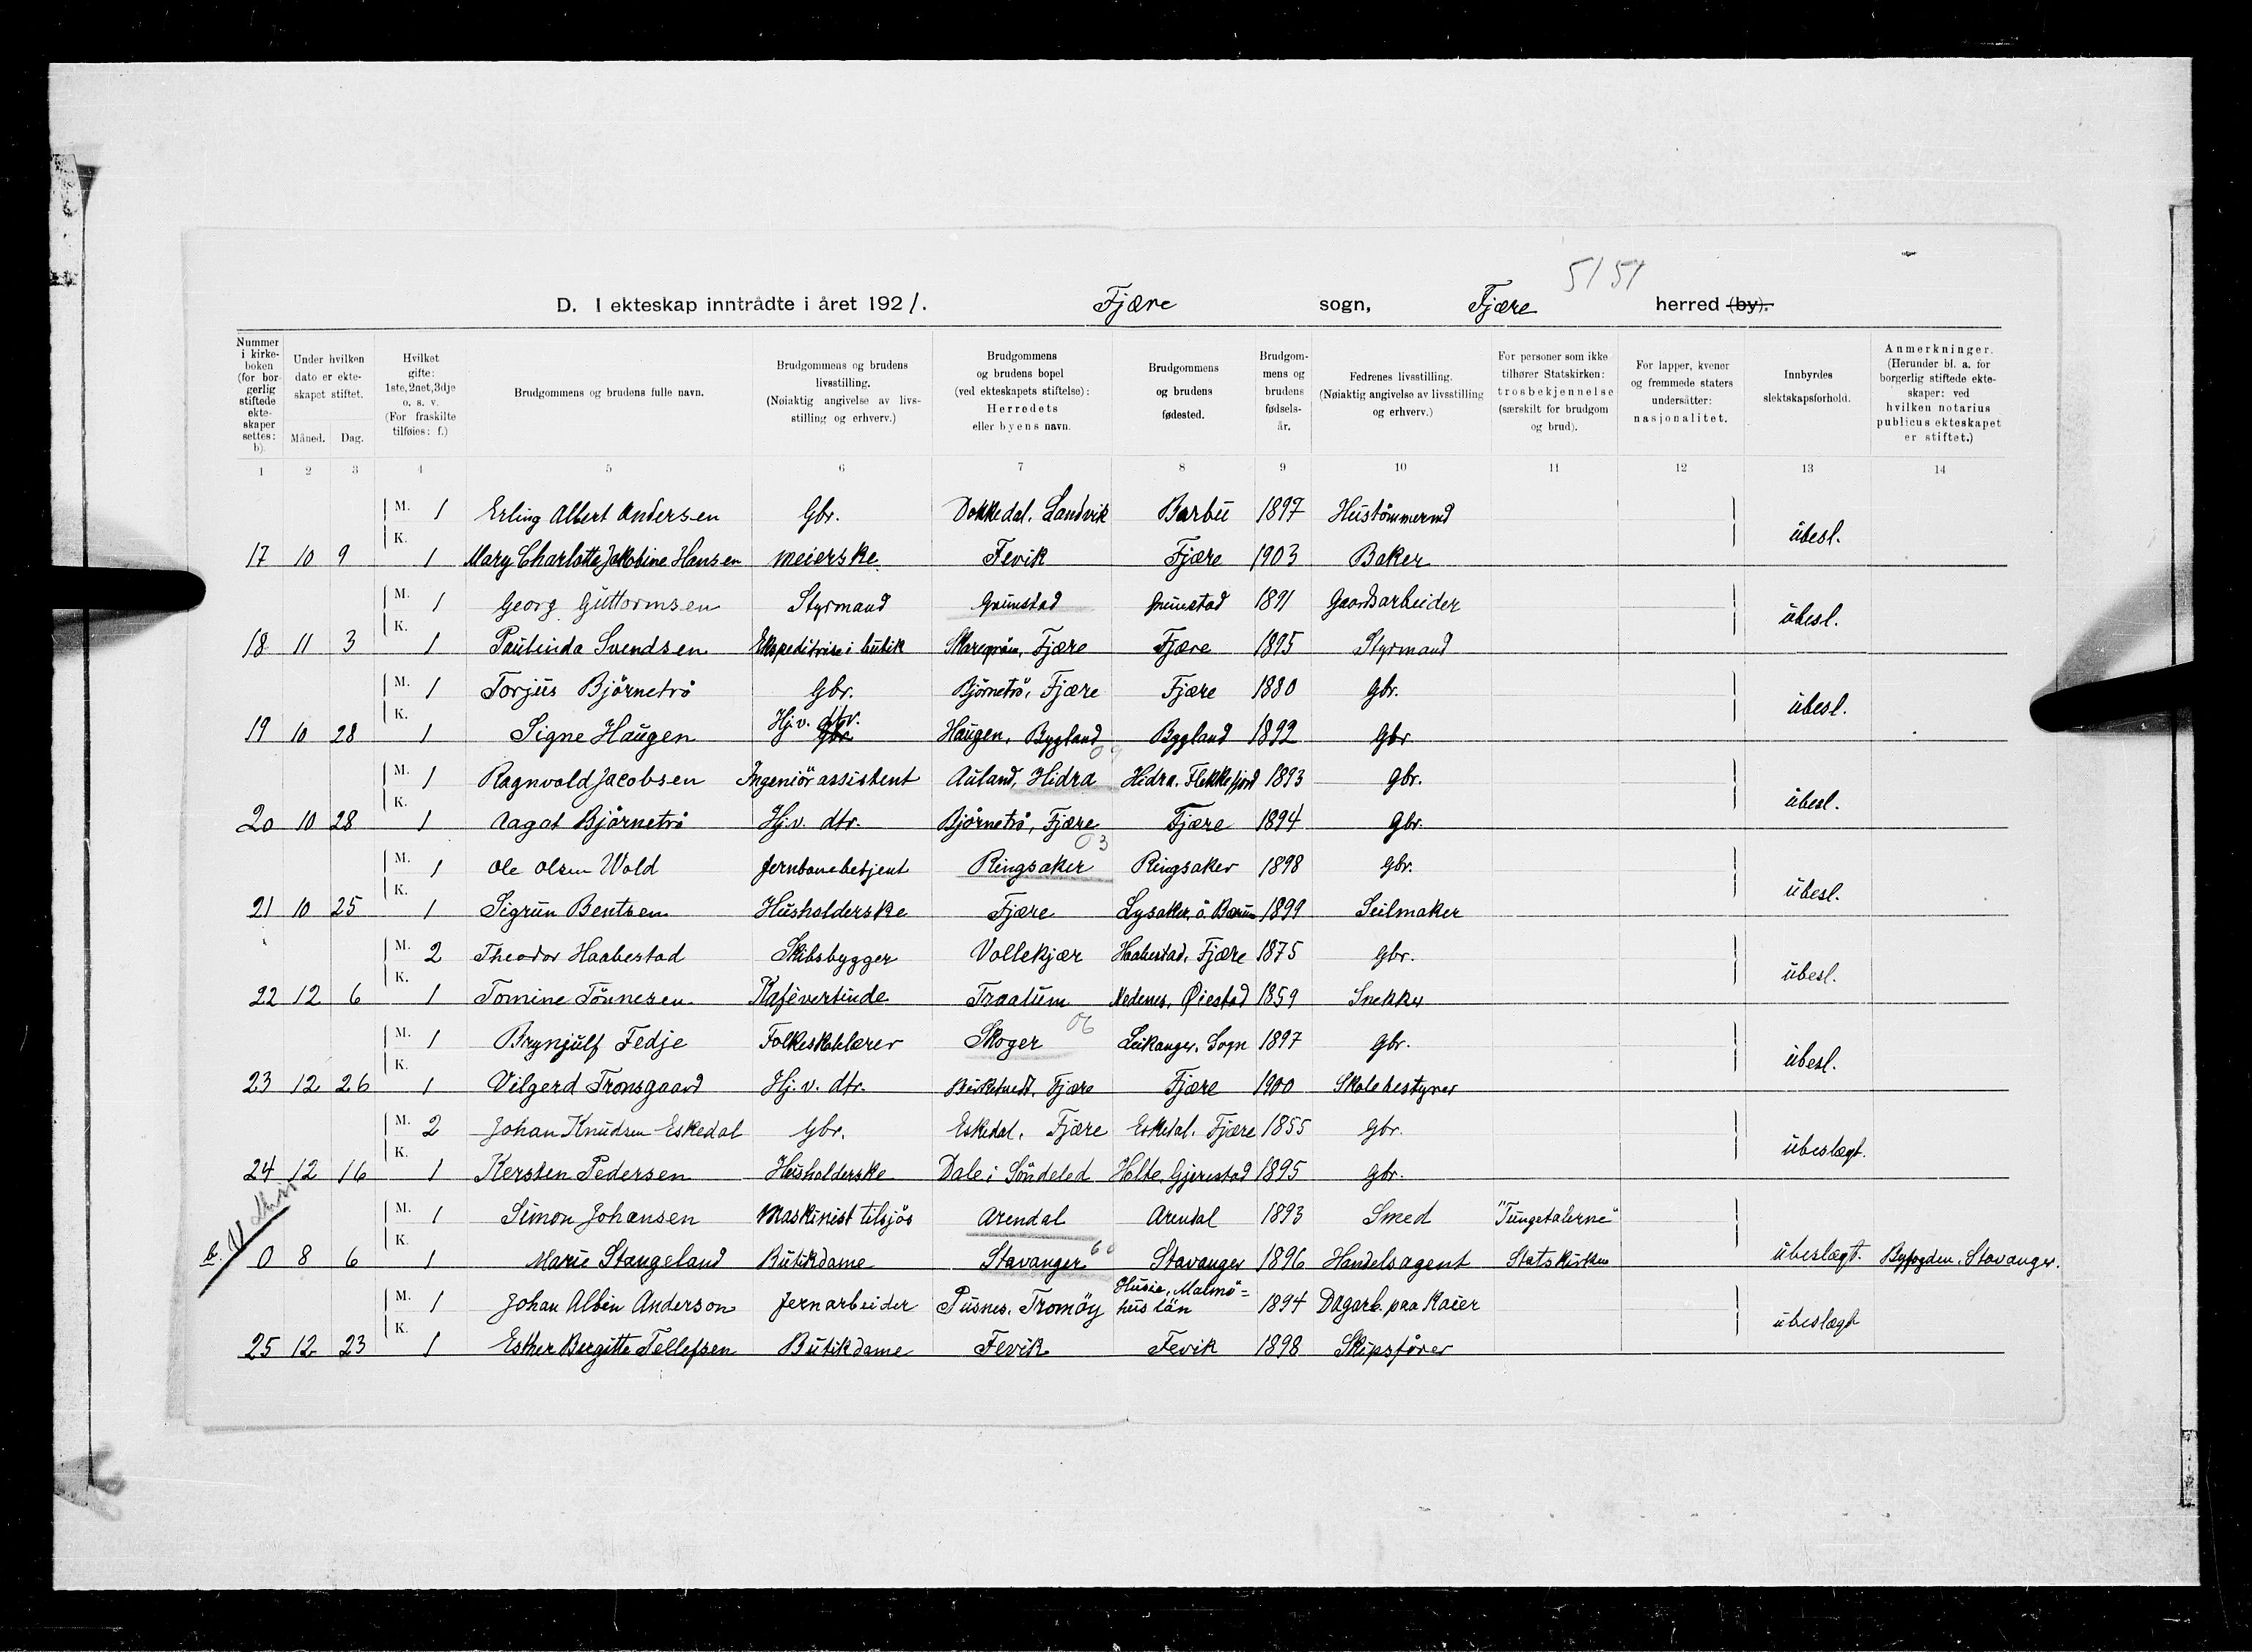 51 51
D. I ekteskap inntrådte i året 1921. Fjære sogn, Fjære herred (by).
Nummer i kirkeboken (for borgerlig stiftede ekteskaper settes: b). Under hvilken dato er ekteskapet stiftet. Måned. Dag. Hvilket gifte: 1ste, 2net, 3dje o. s. v. (For fraskilte tilføies: f.) Brudgommens og brudens fulle navn. Brudgommens og brudens livsstilling. (Nøiaktig angivelse av livsstilling og erhverv.) Brudgommens og brudens bopel (ved ekteskapets stiftelse): Herredets eller byens navn. Brudgommens og brudens fødested. Brudgommens og brudens fødselsår. Fedrenes livsstilling. (Nøiaktig angivelse av livsstilling og erhverv.) For personer som ikke tilhører Statskirken: trosbekjennelse (særskilt for brudgom og brud). For lapper, kvener og fremmede staters undersåtter: nasjonalitet. Innbyrdes slektskapsforhold. Anmerkninger. (Herunder bl. a. for borgerlig stiftede ekteskaper: ved hvilken notarius publicus ekteskapet er stiftet.)
1 2 3 4 5 6 7 8 9 10 11 12 13 14
M. 1 Erling Albert Andersen Gbr. Dokkedal, Landvik Barbu 1897 Hustømmermd
17 10 9 K. 1 Mary Charlotte Jakobine Hansen meierske Fevik Fjære 1903 Baker ubesl.
M. 1 Georg Guttormsen Styrmand Grimstad Grimstad 1891 Gaardsarbeider
18 11 3 K. 1 Paulinda Svendsen Ekspeditrise i butik Fjære Fjære 1895 Styrmand ubesl.
M. 1 Torjus Bjørnetrø Gbr. Bjørnetrø, Fjære Fjære 1880 Gbr.
19 10 28 K. 1 Signe Haugen Hj.v. dtr. Gbr. Haugen, Bygland Bygland 1892 Gbr. ubesl.
09
M. 1 Ragnvald Jacobsen Ingeniør assistent Auland, Hidra Hidra. Flekkefjord 1893 gbr.
20 10 28 K. 1 Aagot Bjørnetrø Hj.v. dtr. Bjørnetrø, Fjære Fjære 1894 Gbr. ubesl.
03
M. 1 Ole Olsen Wold Jernbanebetjent Ringsaker Ringsaker 1898 Gbr.
21 10 25 K. 1 Sigrun Bentsen Husholderske Fjære Lysaker, ø. Bærum 1899 Seilmaker ubesl.
M. 2 Theodor Haabestad Skibsbygger Vollekjær Haabestad, Fjære 1875 Gbr.
22 12 6 K. 1 Tomine Tønnesen Kafévertinde Traalum Nedenes, Øiestad 1859 Snekker ubesl.
06
M. 1 Brynjulf Fedje Folkeskolelærer Skoger Leikanger, Sogn 1897 Gbr.
23 12 26 K. 1 Vilgerd Tronsgaard Hj.v. dtr. Fjære Fjære 1900 Skolebestyrer ubesl.
M. 2 Johan Knudsen Eskedal Gbr. Eskedal, Fjære Eskedal. Fjære 1855 Gbr.
24 12 16 K. 1 Kersten Pedersen Husholderske Dale i Søndeled Holte, Gjerestad 1895 gbr. ubeslægt.
M. 1 Simon Johansen Maskinist tilsjøs Arendal Arendal 1893 Smed "Tungetalerne"
b. 0 8 6 K. 1 Marie Stangeland Butikdame Stavanger 60 Stavanger 1896 Handelsagent Statskirken ubeslægt. Byfogden, Stavanger.
M. 1 Johan Albin Anderson Jernarbeider Pusnes, Tromøy Husie, Malmö=hus län 1894 Dagarb. paa Kaier
25 12 23 K. 1 Esther Bergitte Tellefsen Butikdame Fevik Fevik 1898 Skipsfører ubeslægt